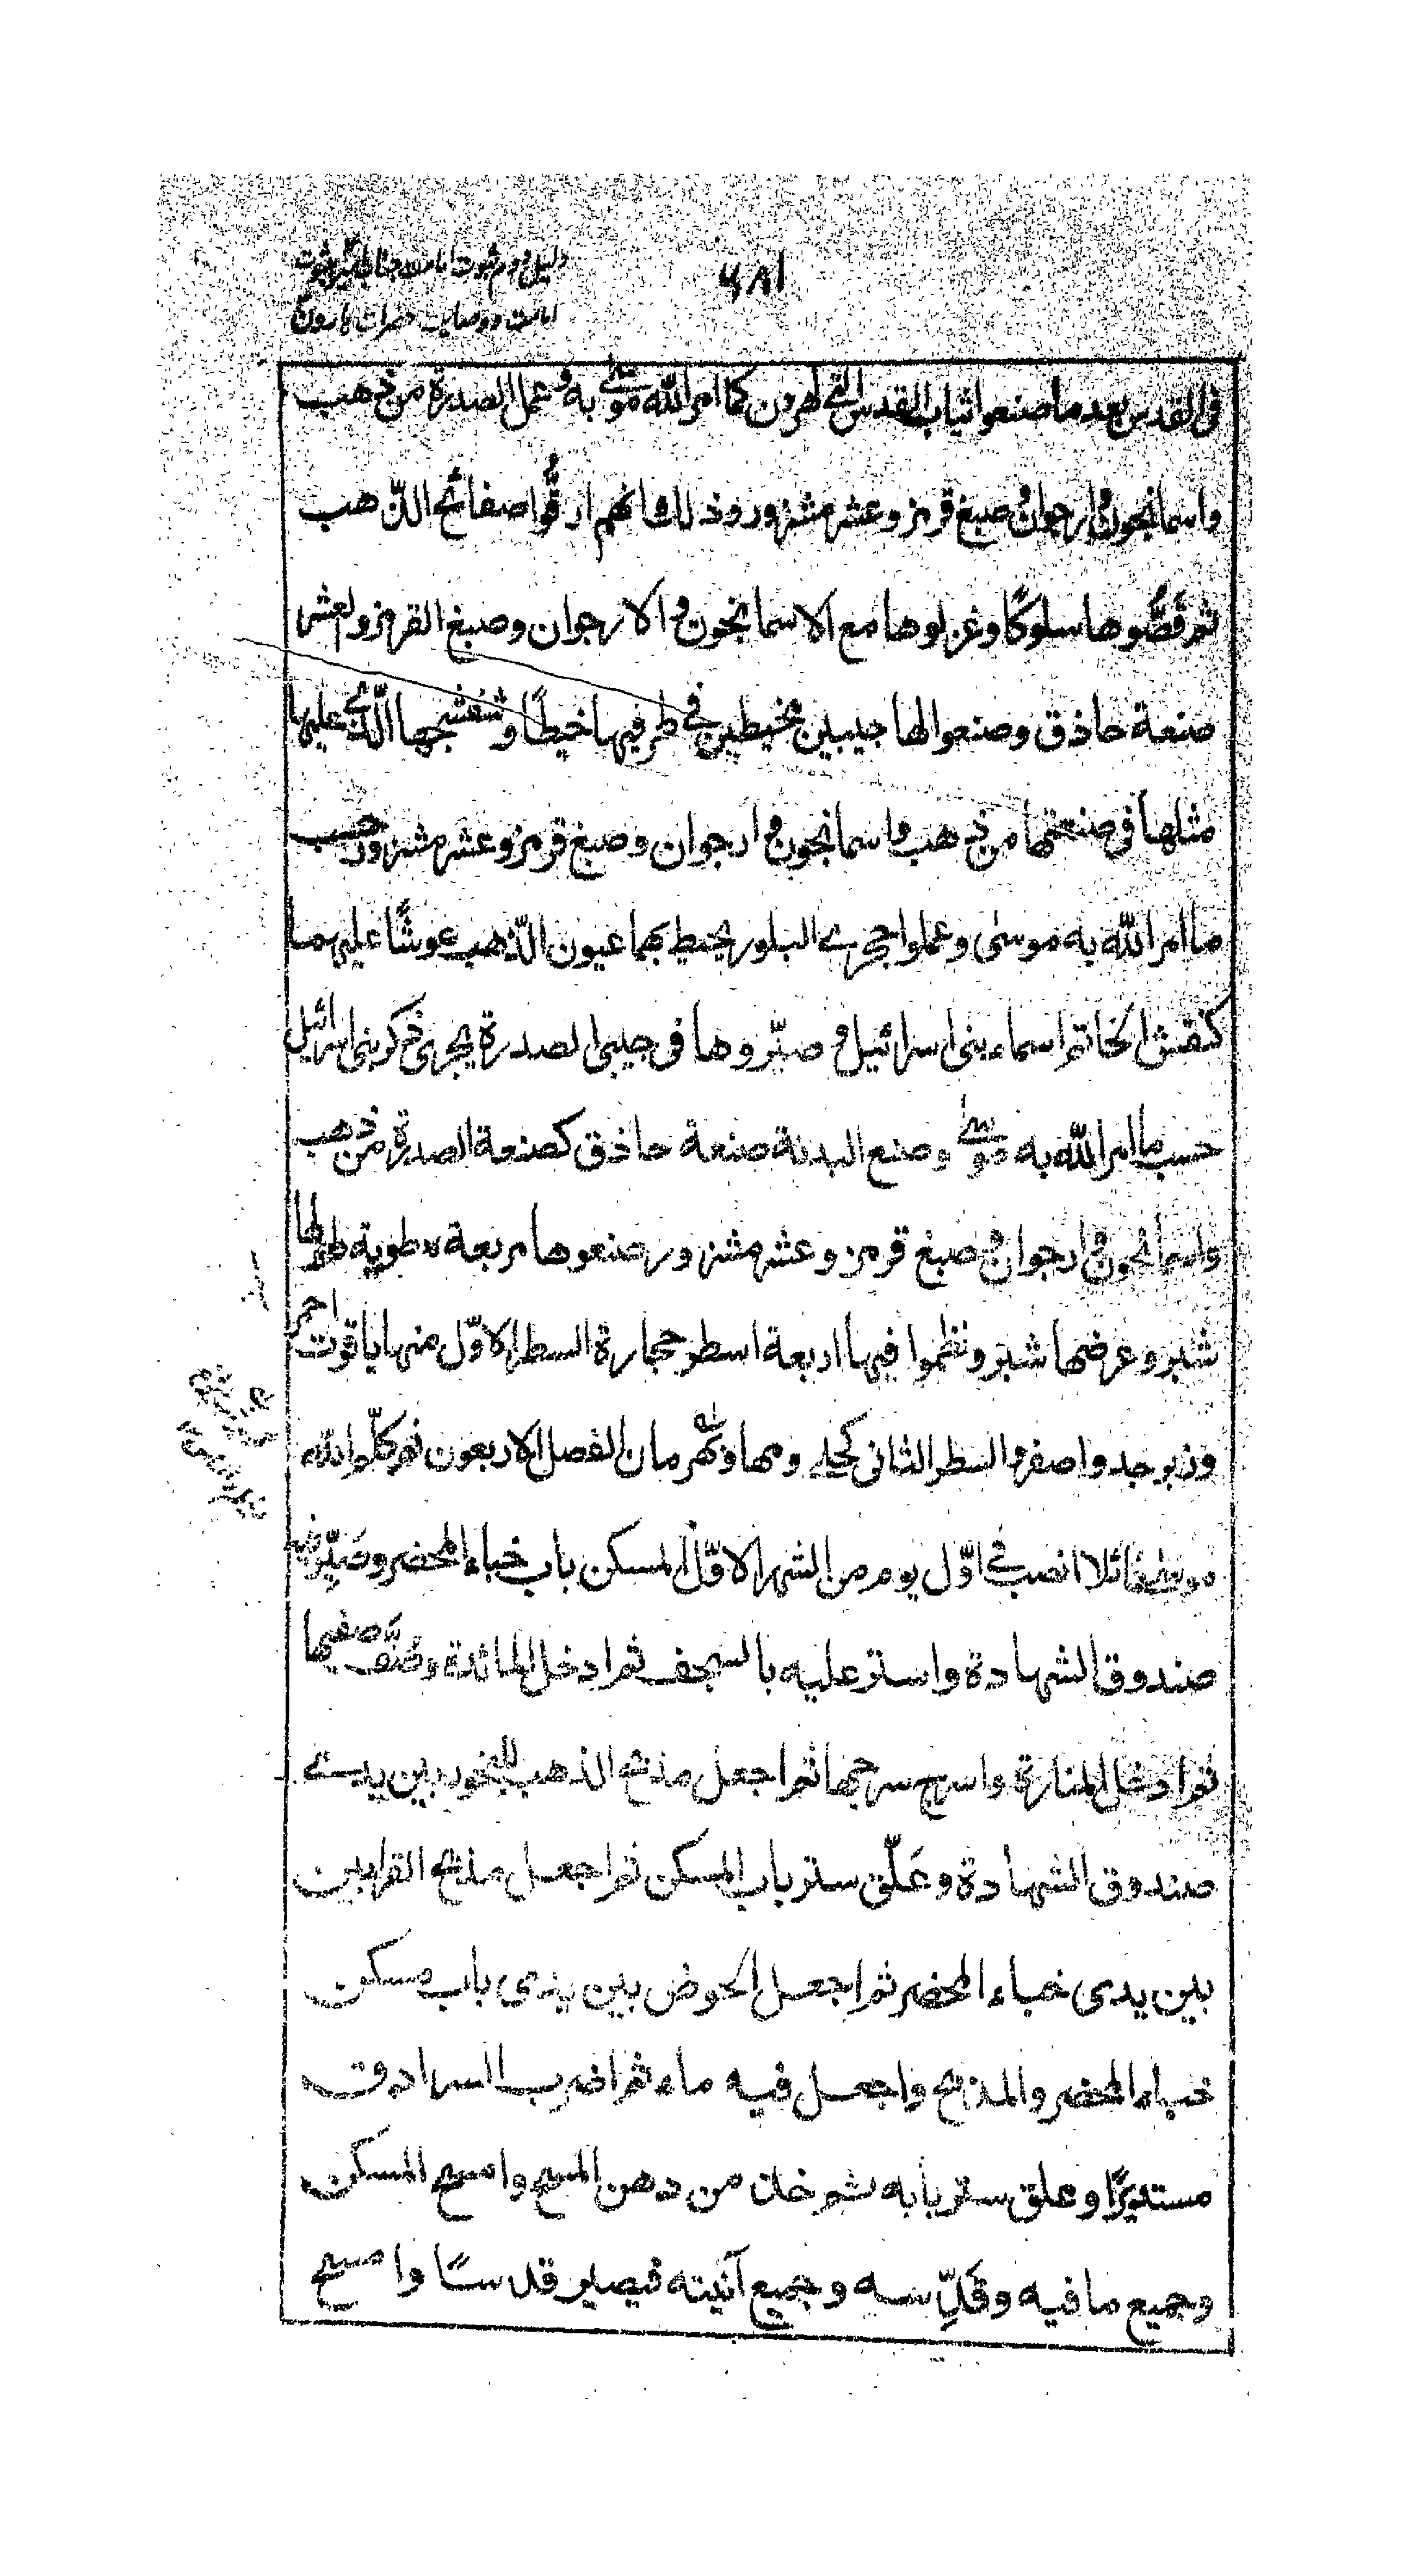 ۴۸۱
دلیل دوم ثبوت امامت جناب امیر ثبوت
امامت ووصایت حضرت هارون
فى القدس بعد ما صنعوا ثياب القدس التى لهرون كما امر الله به موسى وعمل الصدرة من ذهب
واسمانجون وارجوان وصبغ قرمز وعشر مشزور وذلك انهم ارقّوا صفائح الذّهب
ثم قصُّوها سلوكًا وغزلوها مع الاسمانجون والارجوان وصبغ القرمز والعشر
صنعة حاذق وصنعوا لها جيبين مخيطين فى طرفيها خيطًا وشفشجها الّذى عليها
مثلها فى صنعتها من ذهب واسمانجون وارجوان وصبغ قرمز وعشر مشزور حسب
ما امر الله به موسى وعملوا حجرى البلور يحيط بهما عيون الذّهب عوشًا عليهما
كنقش الخاتم اسماء بنى اسرائيل و صيّروها فى جيبى الصدرة حجرى ذكر بنى اسرائيل
حسب ما امر الله به موسى وصنع البدنة صنعة حاذق كصنعة الصدرة من ذهب
واسمانجون وارجوان وصبغ قرمز وعشر مشزور صنعوها مربعة مطوية طولها
شبر وعرضها شبر ونظموا فيها اربعة اسطر حجارة السطر الاوّل منها ياقوت احمر
وزبرجد واصفر والسطر الثانى كحلى ومها وبهرمان الفصل الاربعون ثم كلّم الله
موسى قائلا انصب فى اوّل يوم من الشهر الاوّل المسكن باب خباء المحضر وصَيِّر فيه
صندوق الشهادة واستر عليه بالسجف ثم ادخل المائدة وصُفَّ صفيها
ثم ادخل المنارة واسرج سرجها ثم اجعل مذبح الذهب للبخور بين يدى
صندوق الشهادة وعَلّق ستر باب المسكن ثم اجعل مذبح القرابين
بين يدى خباء المحضر ثم اجعل الحوض بين يدى باب مسكن
خباء المحضر والمذبح واجعل فيه ماء ثم اضرب السرادق
مستديرًا وعلق ستر بابه ثم خذ من دهن المسح وامسح المسكن
وجميع ما فيه وقَدِّسه وجميع آنيته فيصير قدسًا وامسح